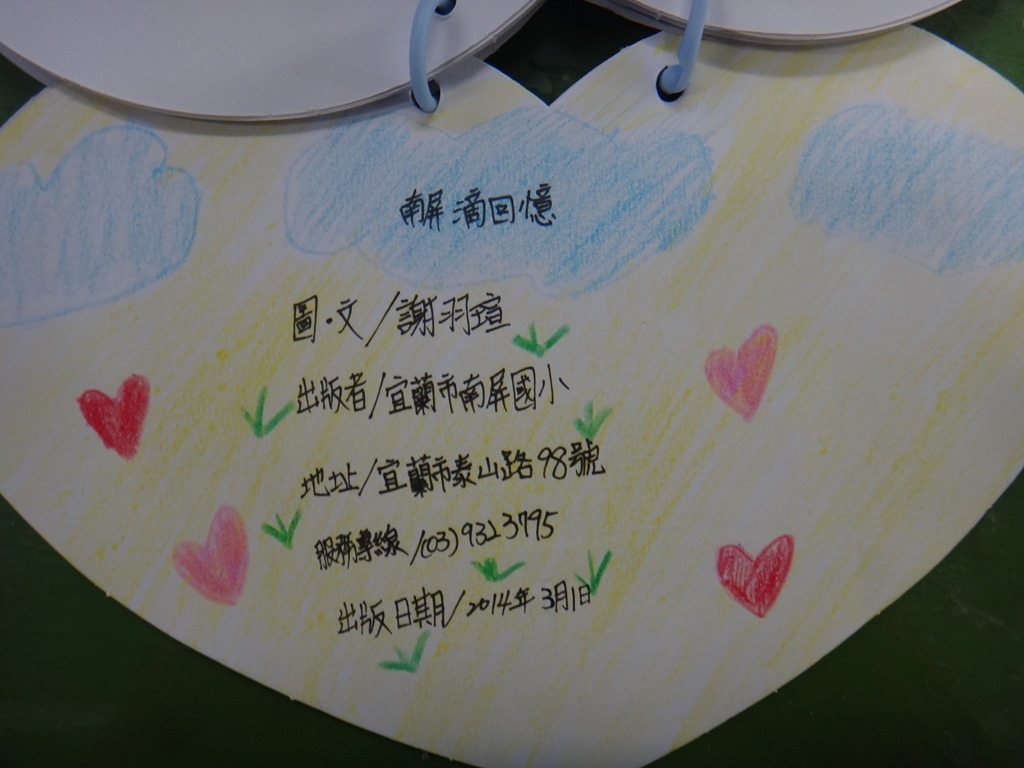 南屏滴回憶
圖·文/謝羽瑄
出版者/宜蘭市南屏國小
地址/宜蘭市泰山路98號
服務專線/(03)9323795
出版日期/2014年3月1日